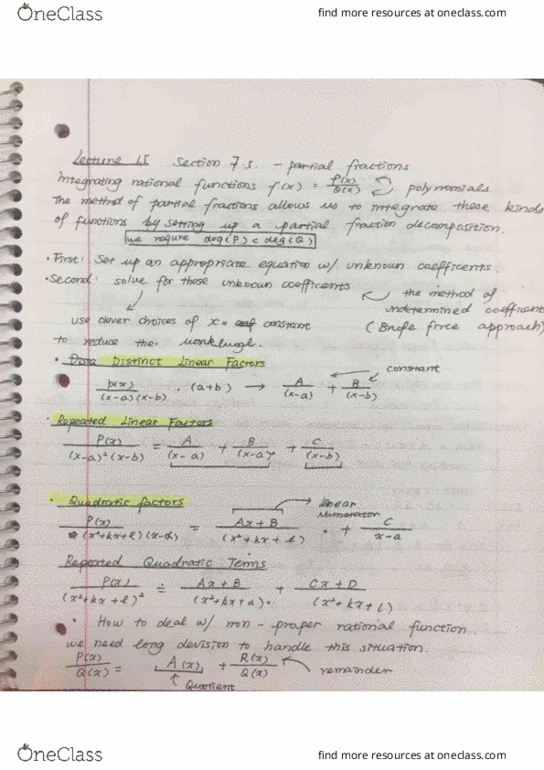 OneClass
find more resources at oneclass.com
Lecture 15 Section 7.5. - partial fractions
Integrating rational functions f(x) = P(x)/Q(x) polynomials
The method of partial fractions allows us to integrate these kinds
of functions by setting up a partial fraction decomposition.
we require deg(P) < deg(Q)
• First: Set up an appropriate equation w/ unknown coefficents.
• Second: solve for those unknown coefficents
the method of
undetermined coefficent
(Brute force approach)
use clever choices of x = constant
to reduce the
• Distinct Linear Factors
constant
P(x)/(x-a)(x-b) . (a+b) → A/(x-a) + B/(x-b)
• Repeated Linear Factors
P(x)/(x-a)²(x-b) = A/(x-a) + B/(x-a)² + C/(x-b)
• Quadratic factors
linear
numerator
P(x)/(x²+kx+l)(x-a) = Ax+B/(x²+kx+l) + C/x-a
Repeated Quadratic Terms
P(x)/(x²+kx+l)² = Ax+B/(x²+kx+a) + Cx+D/(x²+kx+l)
• How to deal w/ non-proper rational function
we need long devision to handle this situation.
P(x)/Q(x) = A(x) + R(x)/Q(x) remainder
↑ Quotient
OneClass
find more resources at oneclass.com